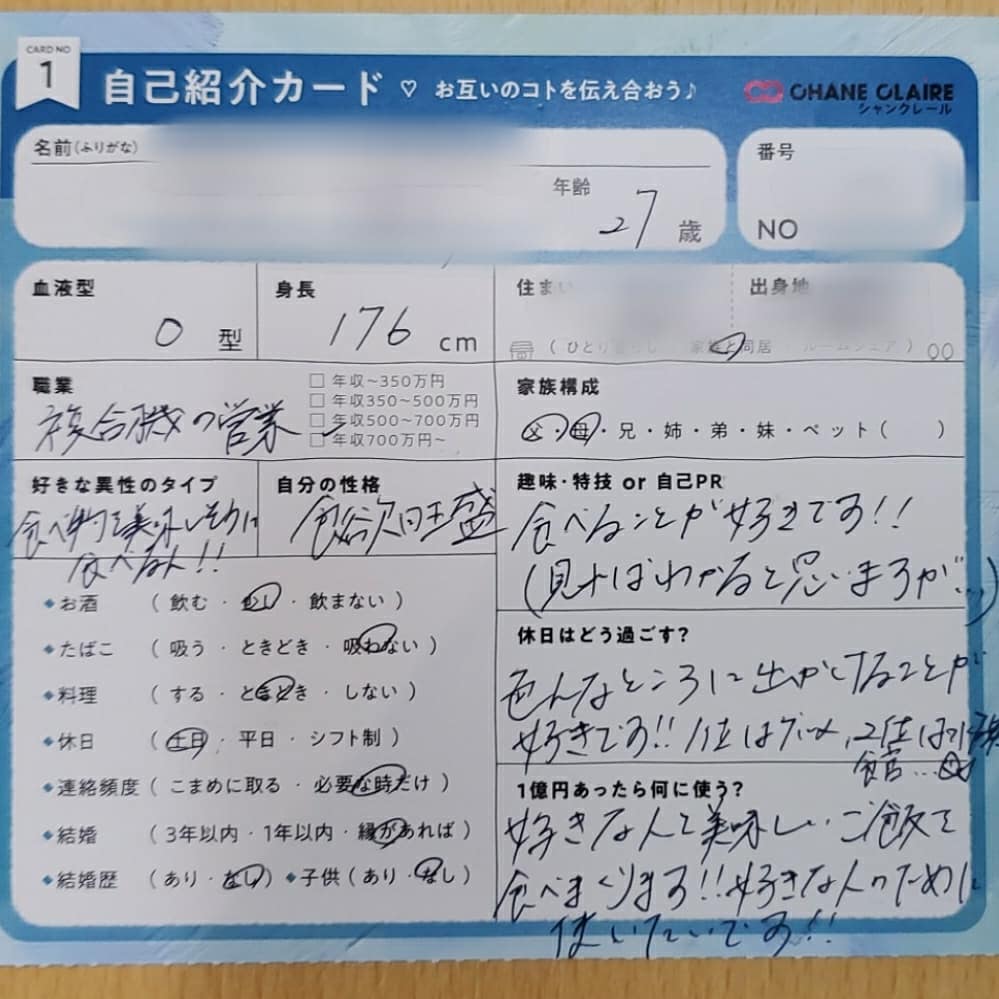 CARD NO
1
自己紹介カード ♡ お互いのコトを伝え合おう♪
CHANE CLAIRE
シャンクレール
名前(ふりがな)
年齢 27 歳
番号
NO
血液型
O 型
身長
176 cm
住まい
出身地
(ひとり暮らし・家族と同居・ルームシェア)
職業
複合機の営業
□ 年収~350万円
□ 年収350~500万円
□ 年収500~700万円
□ 年収700万円~
家族構成
父・母・兄・姉・弟・妹・ペット( )
好きな異性のタイプ
食べ物を美味しそうに
食べる人!!
自分の性格
食欲旺盛
趣味・特技 or 自己PR
食べることが好きです!!
(見ればわかると思いますが...)
◆お酒 (飲む・・飲まない)
◆たばこ (吸う・ときどき・吸わない)
◆料理 (する・ときどき・しない)
◆休日 (土日・平日・シフト制)
◆連絡頻度 (こまめに取る・必要な時だけ)
◆結婚 (3年以内・1年以内・縁があれば)
◆結婚歴 (あり・なし) ◆子供(あり・なし)
休日はどう過ごす?
色んなところに出かけることが
好きです!! 1位はグルメ、2位は
館...
1億円あったら何に使う?
好きな人と美味しいご飯を
食べまくります!!好きな人のために
使いたいです!!